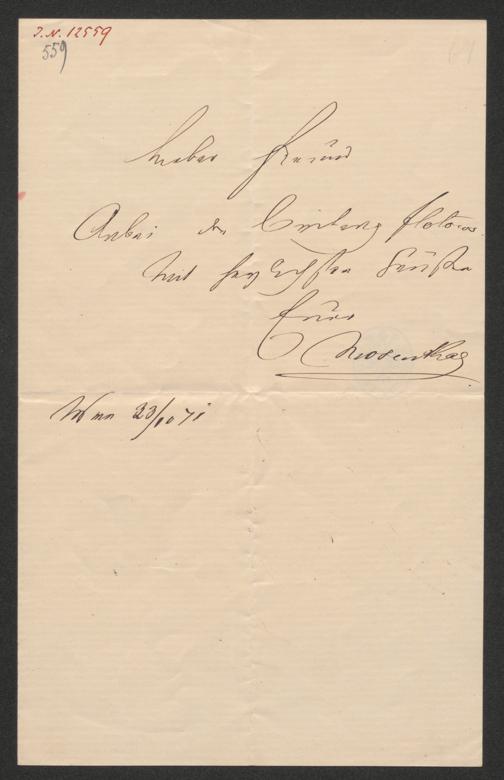 J. N. 12559
559
Lieber Freund
Anbei den Flotows.
Mit herzlichsten Grüßen
Euer
Mosenthal
Wien 23/10 71